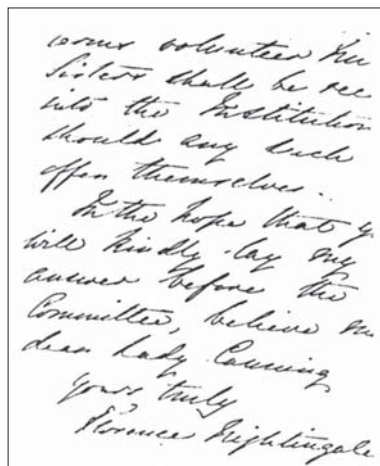 volunteer
Sisters shall be rec
into the Institution
should any such
offer themselves.
In the hope that y
will kindly lay my
answer before the
Committee, believe m
dear Lady Canning
yours truly
Florence Nightingale